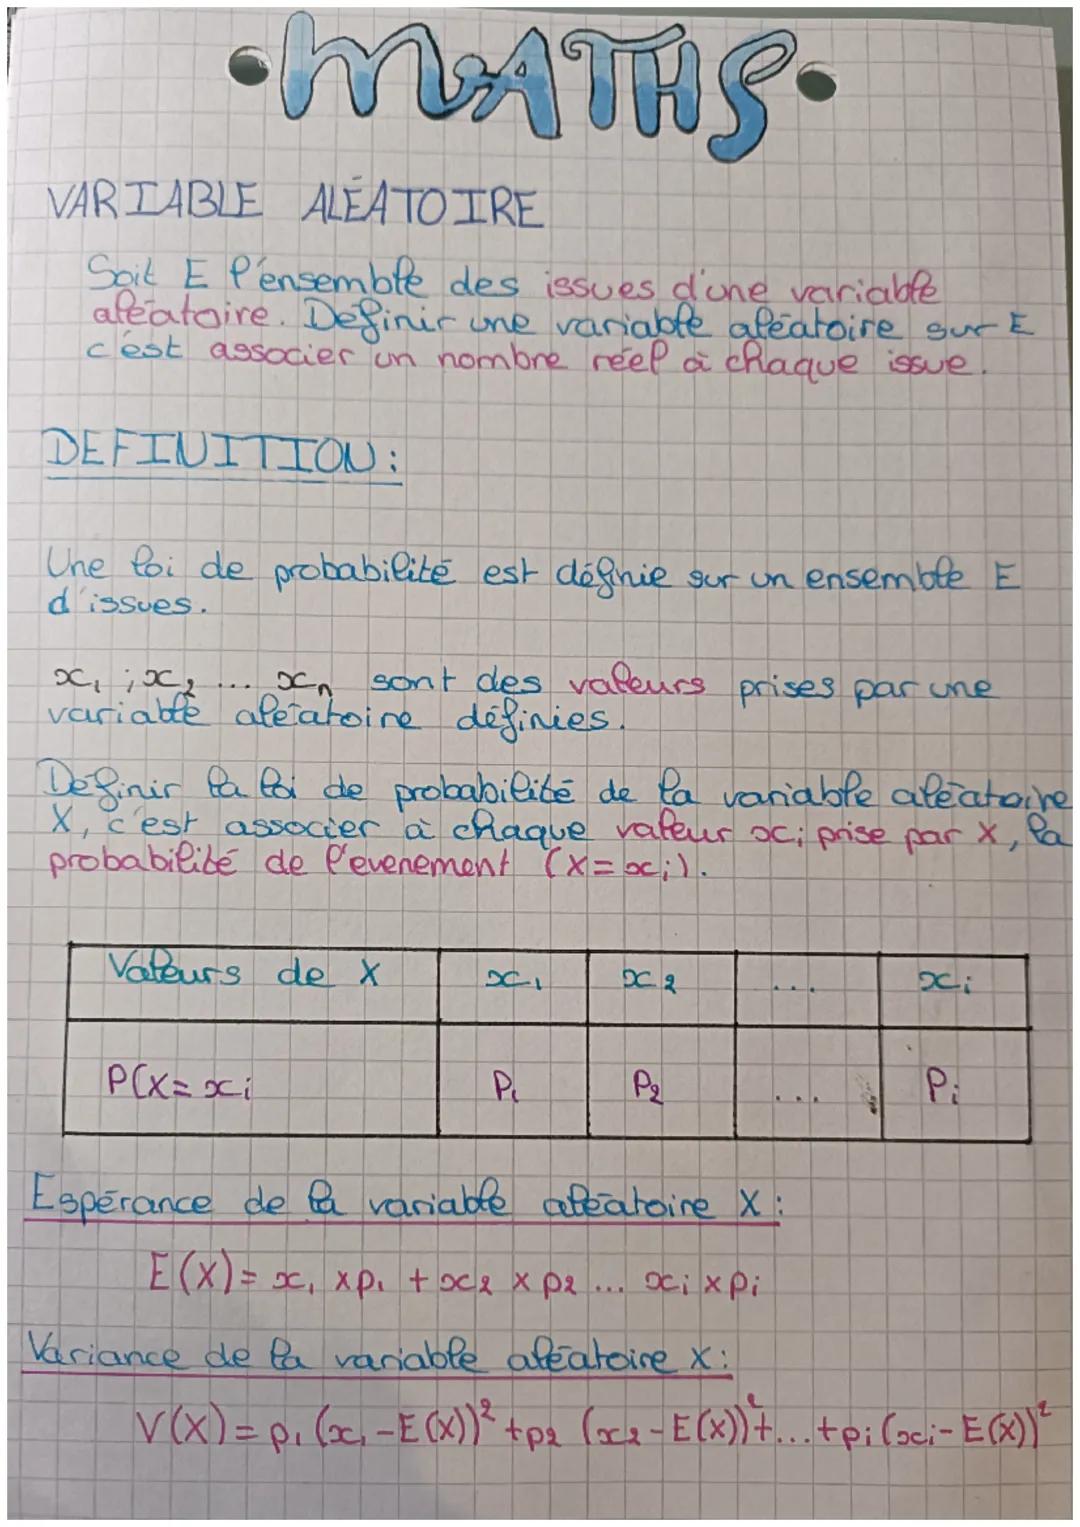 MATHS
VARIABLE ALÉATOIRE
Soit E l'ensemble des issues d'une variable
aléatoire. Définir une variable aléatoire sur E
c'est associer un nombre réel à chaque issue.
DEFINITION :
Une loi de probabilité est définie sur un ensemble E
d'issues.
x₁ ; x₂ ... xₙ sont des valeurs prises par une
variable aléatoire définies.
Définir la loi de probabilité de la variable aléatoire
X, c'est associer à chaque valeur xi prise par X, la
probabilité de l'evenement (X = xi).
Valeurs de X x₁ x₂ ... xi
P(X = xi P₁ P₂ ... Pi
Espérance de la variable aléatoire X :
E(X) = x₁ × p₁ + x₂ × p₂ ... xi × pi
Variance de la variable aléatoire X :
V(X) = p₁ (x₁ - E(X))² + p₂ (x₂ - E(X))² + ... + pi (xi - E(X))²